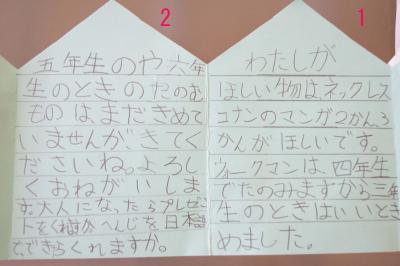 1
わたしが
ほしい物は、ネックレス
コナンのマンガ2かん、3
かんがほしいです。
ウォークマンは、四年生
でたのみますから三年
生のときはいいときめ
めました。
2
五年生のや六年
生のときのたのむ
ものは、まだきめて
いませんが、きてく
ださいね。よろし
くおねがいしま
す。大人になったらプレゼン
トをくれますか へんじを日本語
で、できらくれますか。